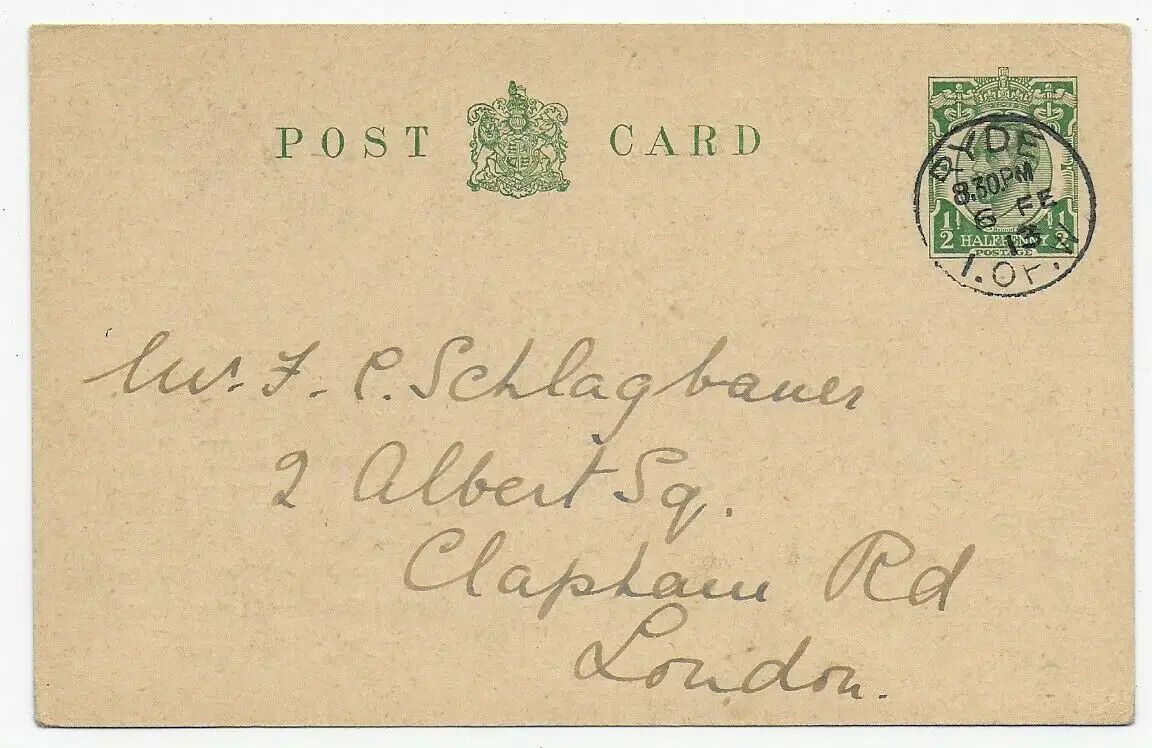 POST CARD
RYDE
8.30PM
6 FE
13
I.OF.W
1/2 HALFPENNY 1/2
POSTAGE
Mr. F. C. Schlagbauer
2 Albert Sq.
Clapham Rd
London.